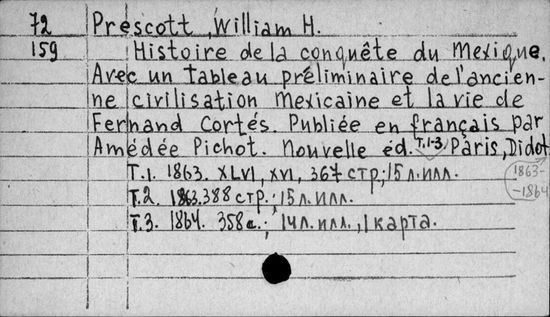 72 Prescott, William H.
159 Histoire de la conquête du Mexique.
Avec un tableau préliminaire de l'ancien-
ne civilisation Mexicaine et la vie de
Fernand Cortés. Publiée en français par
Amédée Pichot. Nouvelle éd. T.1-3. Paris, Didot
1863-
-1864
T.1. 1863. XLVI, XVI, 367 стр.; 15 л. илл.
T.2. 1863. 388 стр.; 15 л. илл.
T.3. 1864. 358 с.; 14 л. илл., 1 карта.